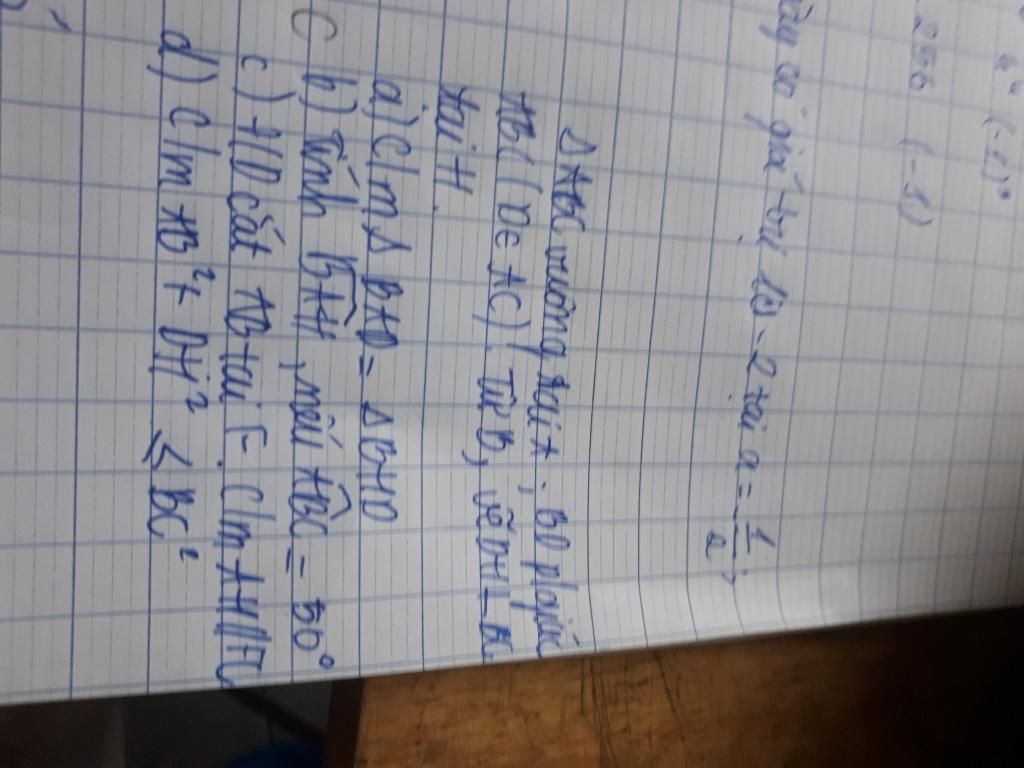 4ⁿ (-1)⁰
256 (-1)
có giá trị là -2 tại a = 1/2;
ΔABC vuông tại A, BD p/giác
ABC (D∈AC). Từ D, vẽ DH ⊥ BC
tại H.
a) C/m Δ BAD = Δ BHD
b) Tính BÂH, nếu AB̂C = 50°
c) HD cắt AB tại F. C/m AH // FC
d) C/m AB² + DH² ≤ BC²